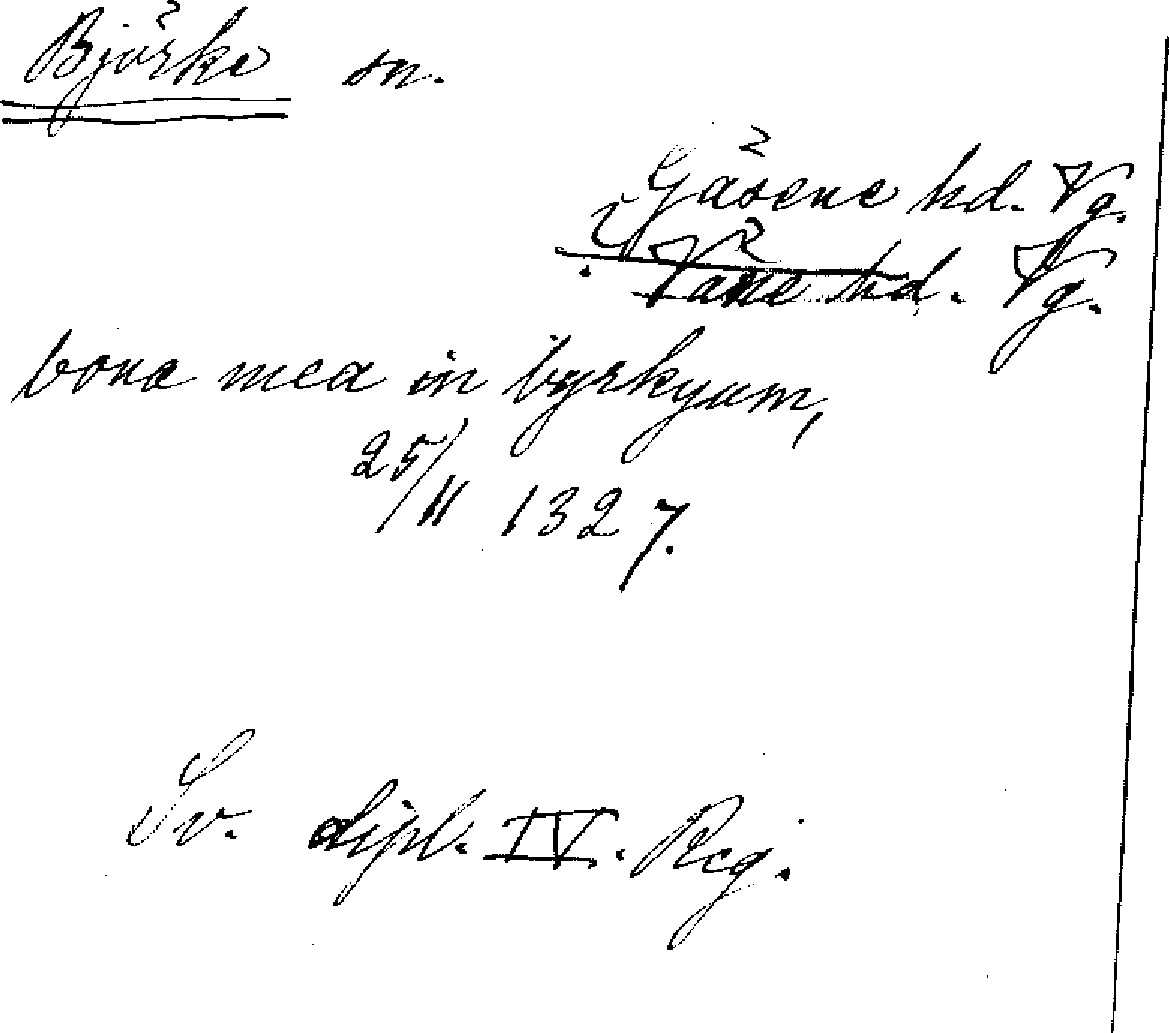 Björke sn.
Gäsene hd. Vg.
i Väne hd. Vg.
bona mea in byrkyum,
25/11 1327.
Sv. dipl. IV. Reg.